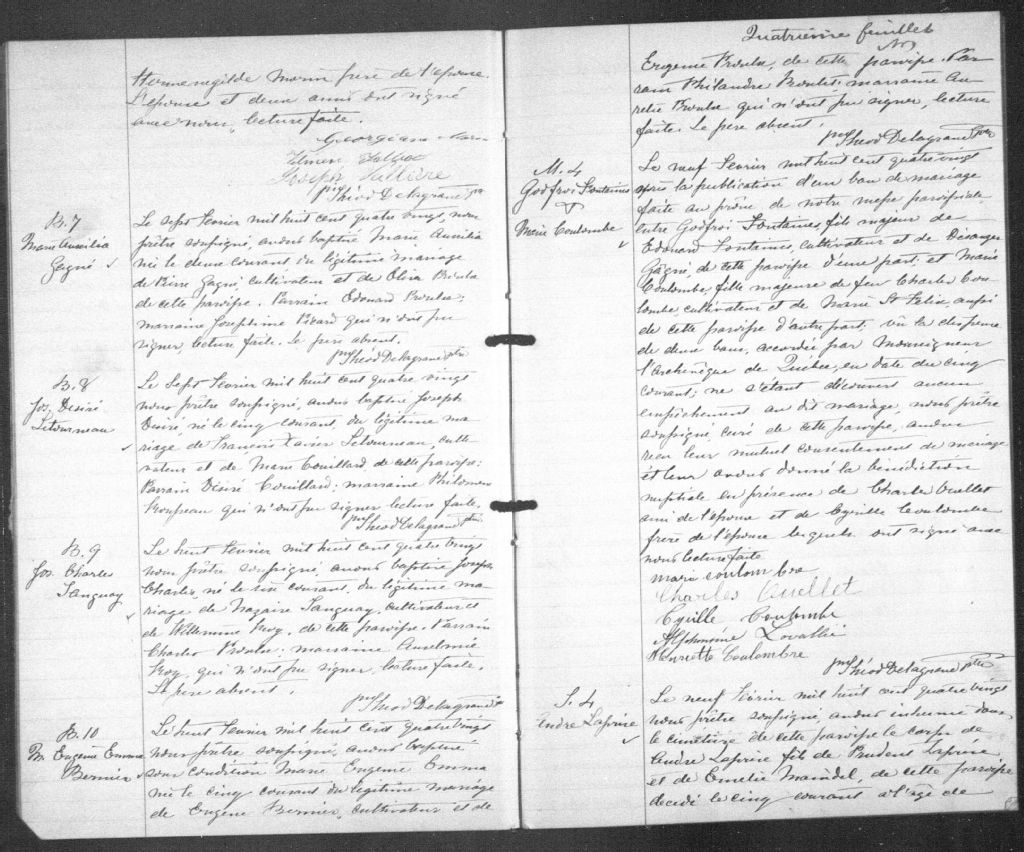 Hormenegilde Morin frere de l'epouse.
L'epouse et deux amis ont signé
avec nous, lecture faite.
Georgiana Morin
Joseph
ptre Théod Delagrave ptre
B. 7
Marie Aurélia
Gagné
Le sept Fevrier mil huit cent quatre vingt, nous
prêtre soussigné, avons baptisé Marie Aurélia
née le deux courant du légitime mariage
de Pierre Gagné, cultivateur et de Olive Proulx
de cette paroisse. Parrain Edouard Proulx;
marraine Josephine Picard qui n'ont pu
signer, lecture faite. Le pere absent.
Théod Delagrave ptre
B. 8
Jos. Désiré
Letourneau
Le Sept Fevrier mil huit cent quatre vingt
nous prêtre soussigné, avons baptisé Joseph
Désiré né le cinq courant, du légitime ma-
riage de François Xavier Letourneau, culti-
vateur et de Marie Couillard de cette paroisse:
Parrain Désiré Couillard; marraine Philomene
Rousseau qui n'ont pu signer lecture faite.
Théod Delagrave ptre
B. 9
Jos. Charles
Tanguay
Le huit Fevrier mil huit cent quatre vingt
nous prêtre soussigné, avons baptisé Joseph
Charles, né le six courant, du légitime ma-
riage de Nazaire Tanguay, cultivateur et
de Roy, de cette paroisse. Parrain
Charles Proulx; marraine Anselmie
Roy, qui n'ont pu signer, lecture faite.
Le pere absent.
Théod Delagrave ptre
B. 10
M. Eugénie Emma
Bernier
Le huit Fevrier mil huit cent quatre vingt
nous prêtre soussigné, avons baptisé
sous condition Marie Eugenie Emma
née le cinq courant du légitime mariage
de Eugène Bernier, cultivateur et de
Quatrième feuillet
Eugenie Proulx, de cette paroisse. Par-
rain Philandre Proulx; marraine Au-
relie Proulx qui n'ont pu signer, lecture
faite. Le pere absent.
Théod Delagrave ptre
M. 4
Godfroi Fontaine
&
Marie Coulombe
Le neuf Fevrier mil huit cent quatre vingt
après la publication d'un ban de mariage
faite au prône de notre messe paroissiale,
entre Godfroi Fontaine, fils majeur de
Edouard Fontaine, cultivateur et de Désanges
Gagné, de cette paroisse d'une part; et Marie
Coulombe, fille majeure de feu Charles Cou-
lombe, cultivateur et de Marie St Felix, aussi
de cette paroisse d'autre part; vû la dispense
de deux bans, accordée par Monseigneur
l'Archevêque de Québec, en date du cinq
courant; ne s'étant découvert aucun
empêchement au dit mariage, nous prêtre
soussigné, curé de cette paroisse, avons
reçu leur mutuel consentement de mariage
et leur avons donné la bénédiction
nuptiale en présence de Charles Ouellet
ami de l'époux et de Cyrille Coulombe
frère de l'épouse lesquels ont signé avec
nous lecture faite
marie coulombre
Charles Ouellet
Cyrille Coulombe
Alphonsine Lavallée
Henriette Coulombre
Théod Delagrave ptre
S. 4
André Laprise
Le neuf Fevrier mil huit cent quatre vingt
nous prêtre soussigné, avons inhumé dans
le cimetière de cette paroisse le corps de
André Laprise fils de Prudent Laprise
et de Emelie, de cette paroisse
décédé le cinq courant à l'age de